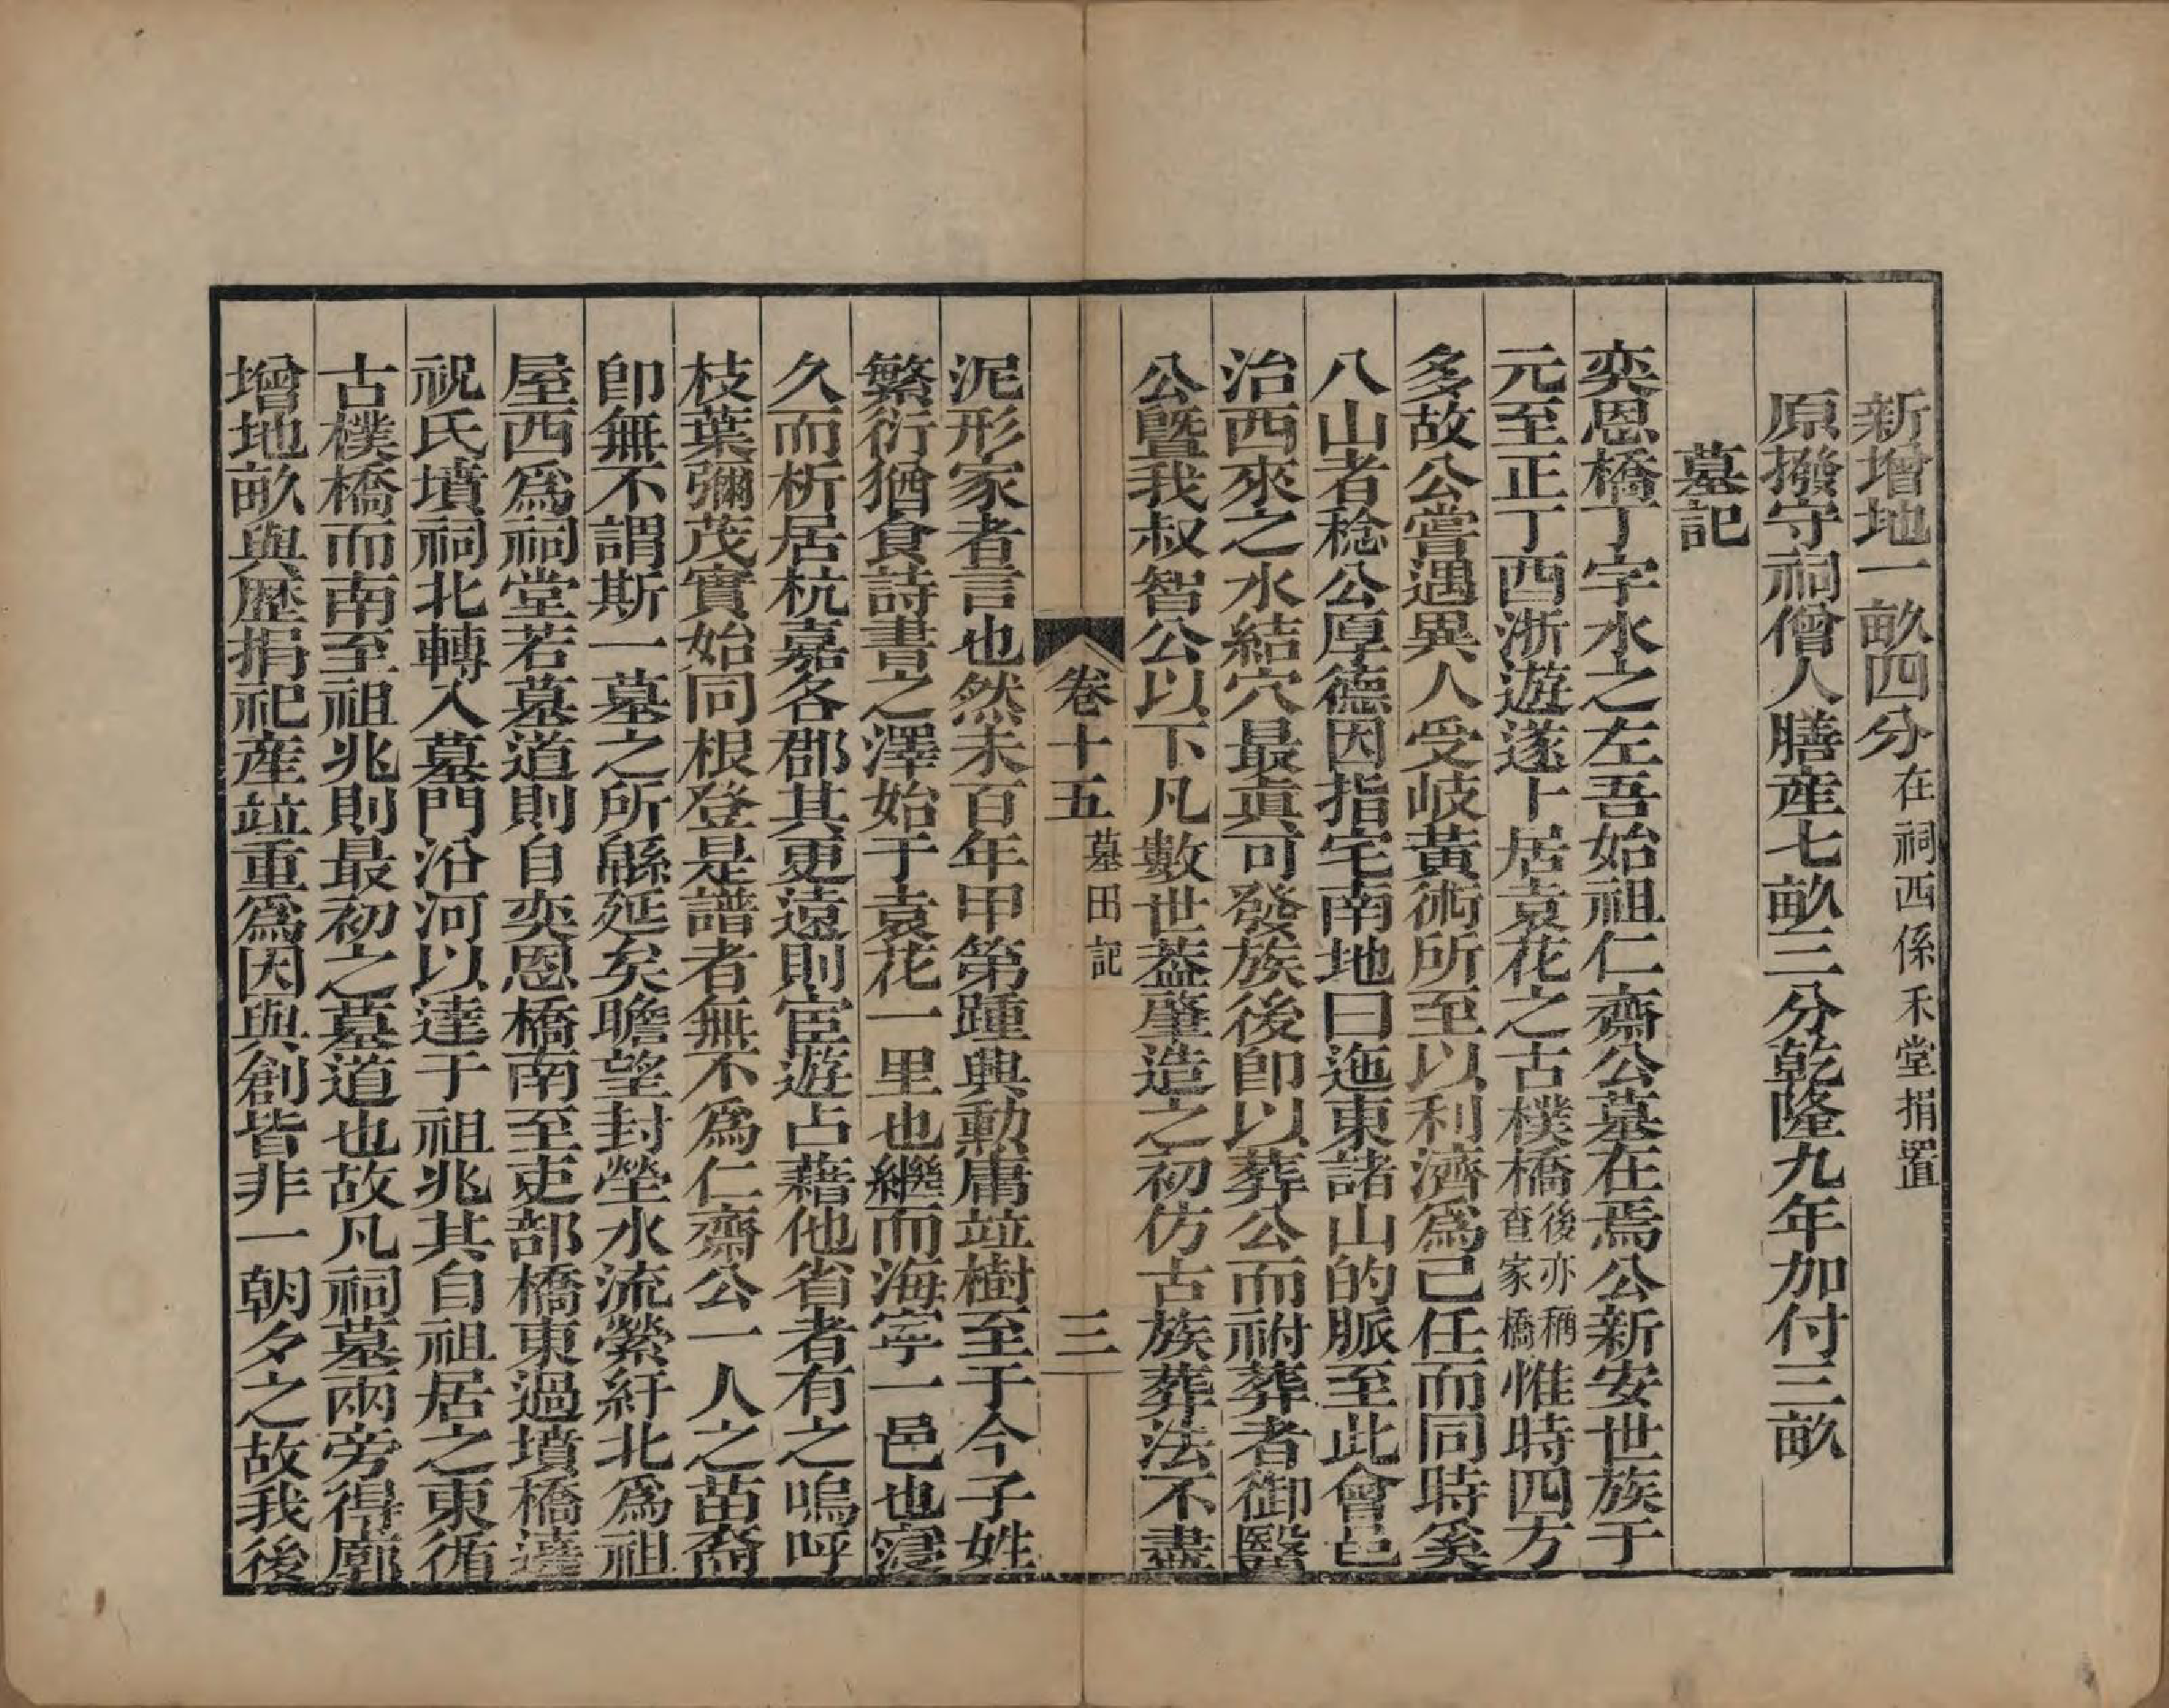 新增地一畝四分在祠西係禾堂捐置
原撥守祠僧人膳産七畝三分乾隆九年加付三畝
墓記
奕恩橋丁字水之左吾始祖仁齋公墓在焉公新安世族于
元至正丁酉浙遊遂卜居袁花之古樸橋後亦稱查家橋惟時四方
多故公嘗遇異人受岐黃術所至以利濟爲己任而同時奚
八山者稔公厚德因指宅南地曰迤東諸山的脈至此會邑
治西來之水結穴最眞可發族後卽以葬公而祔葬者御醫
公曁我叔智公以下凡數世葢肇造之初仿古族葬法不盡
卷十五 墓田記 三
泥形家者言也然未百年甲第踵興勳庸竝樹至于今子姓
繁衍猶食詩書之澤始于袁花一里也繼而海寧一邑也寖
久而析居杭嘉各郡其更遠則宦遊占藉他省者有之嗚呼
枝葉彌茂實始同根登是譜者無不爲仁齋公一人之苗裔
卽無不謂斯一墓之所緜延矣瞻望封塋水流縈紆北爲祖
屋西爲祠堂若墓道則自奕恩橋南至吏部橋東過墳橋達
祝氏墳祠北轉入墓門沿河以達于祖兆其自祖居之東循
古樸橋而南至祖兆則最初之墓道也故凡祠墓兩旁得廓
增地畝與歷捐祀産竝重爲因與創皆非一朝夕之故我後